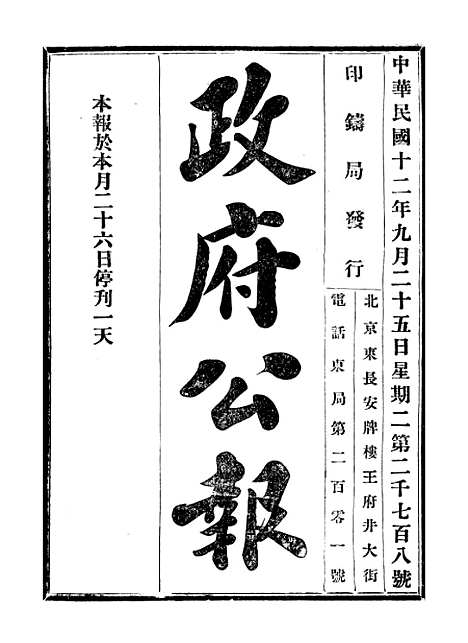 中華民國十二年九月二十五日星期二第二千七百八號
印鑄局發行
北京東長安牌樓王府井大街
電話東局第二百零一號
政府公報
本報於本月二十六日停刊一天